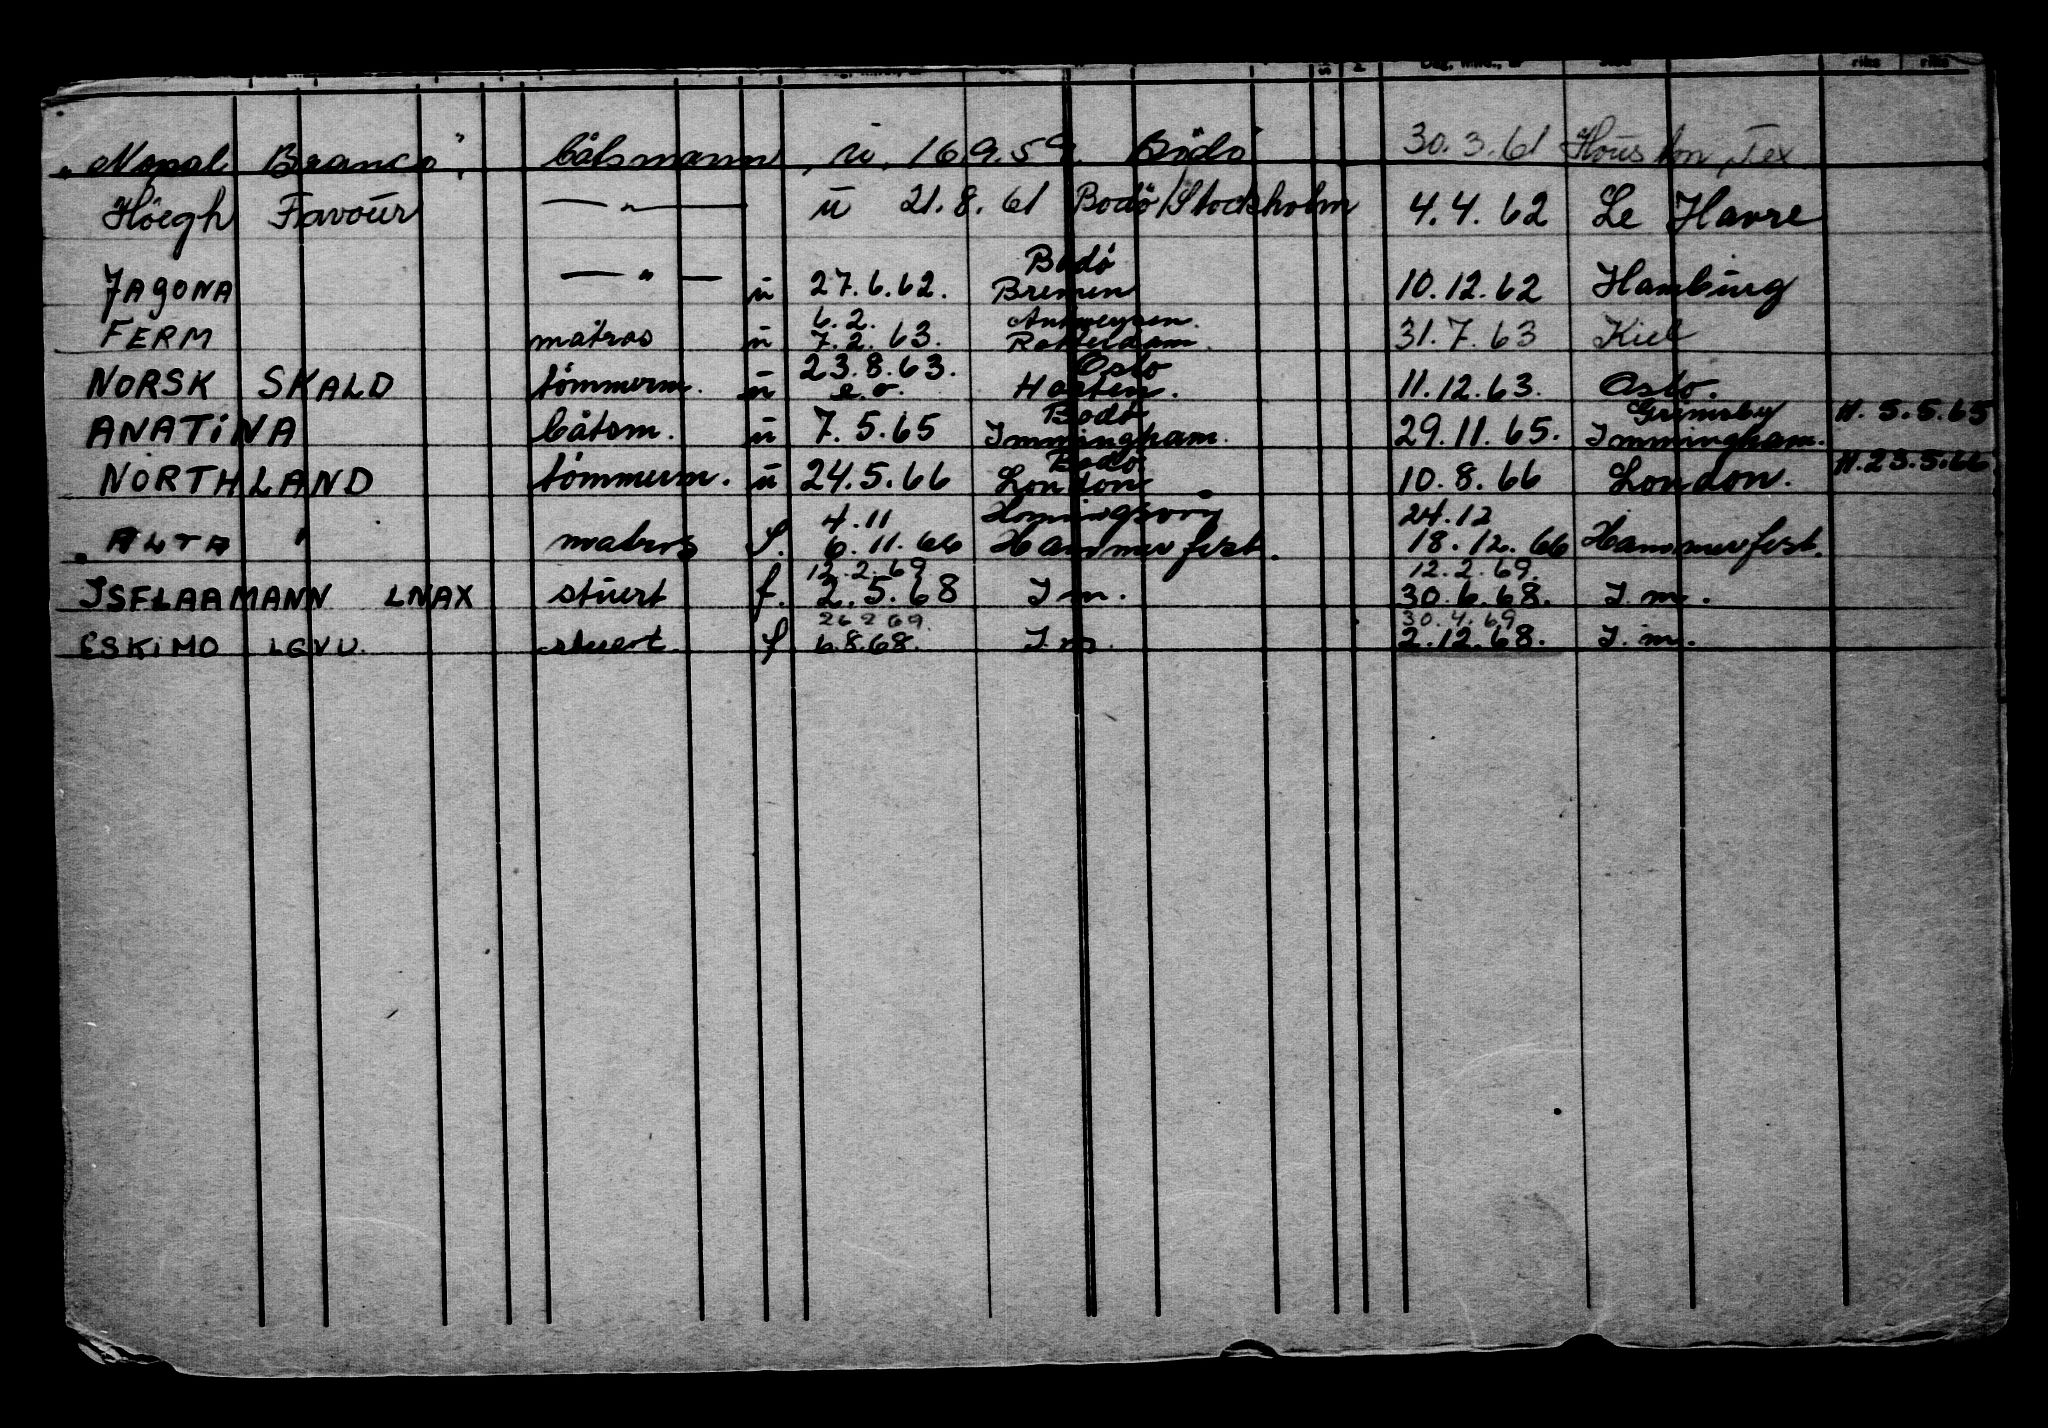 "Nopal Branco", båtsmann, u. 16.9.59. Bodö 30.3.61 Houston, Tex
Höegh Favour —"— u 21.8.61 Bodö/Stockholm 4.4.62 Le Havre
Bodö
JAGONA —"— u 27.6.62. Bremen 10.12.62 Hamburg
6.2. Antwerpen.
FERM matros u 7.2.63. Rotterdam. 31.7.63 Kiel
23.8.63. Oslo
NORSK SKALD tömmerm. u e.o. Horten. 11.12.63. Oslo.
Bodö Grimsby H. 5.5.65
ANATINA båtsm. u 7.5.65 Immingham. 29.11.65. Immingham.
Bodö H. 23.5.66
NORTHLAND tömmerm. u 24.5.66 London 10.8.66 London.
4.11 Honningsvog 24.12
"ALTA" matros f. 6.11.66 Hammerfest. 18.12.66 Hammerfest.
12.2.69 12.2.69.
ISFLAAMANN LNAX stuert f. 2.5.68 I m. 30.6.68. I. m.
26 2 69. 30.4.69
ESKIMO LGVU. stuert. f 6.8.68. I. m. 2.12.68. I. m.